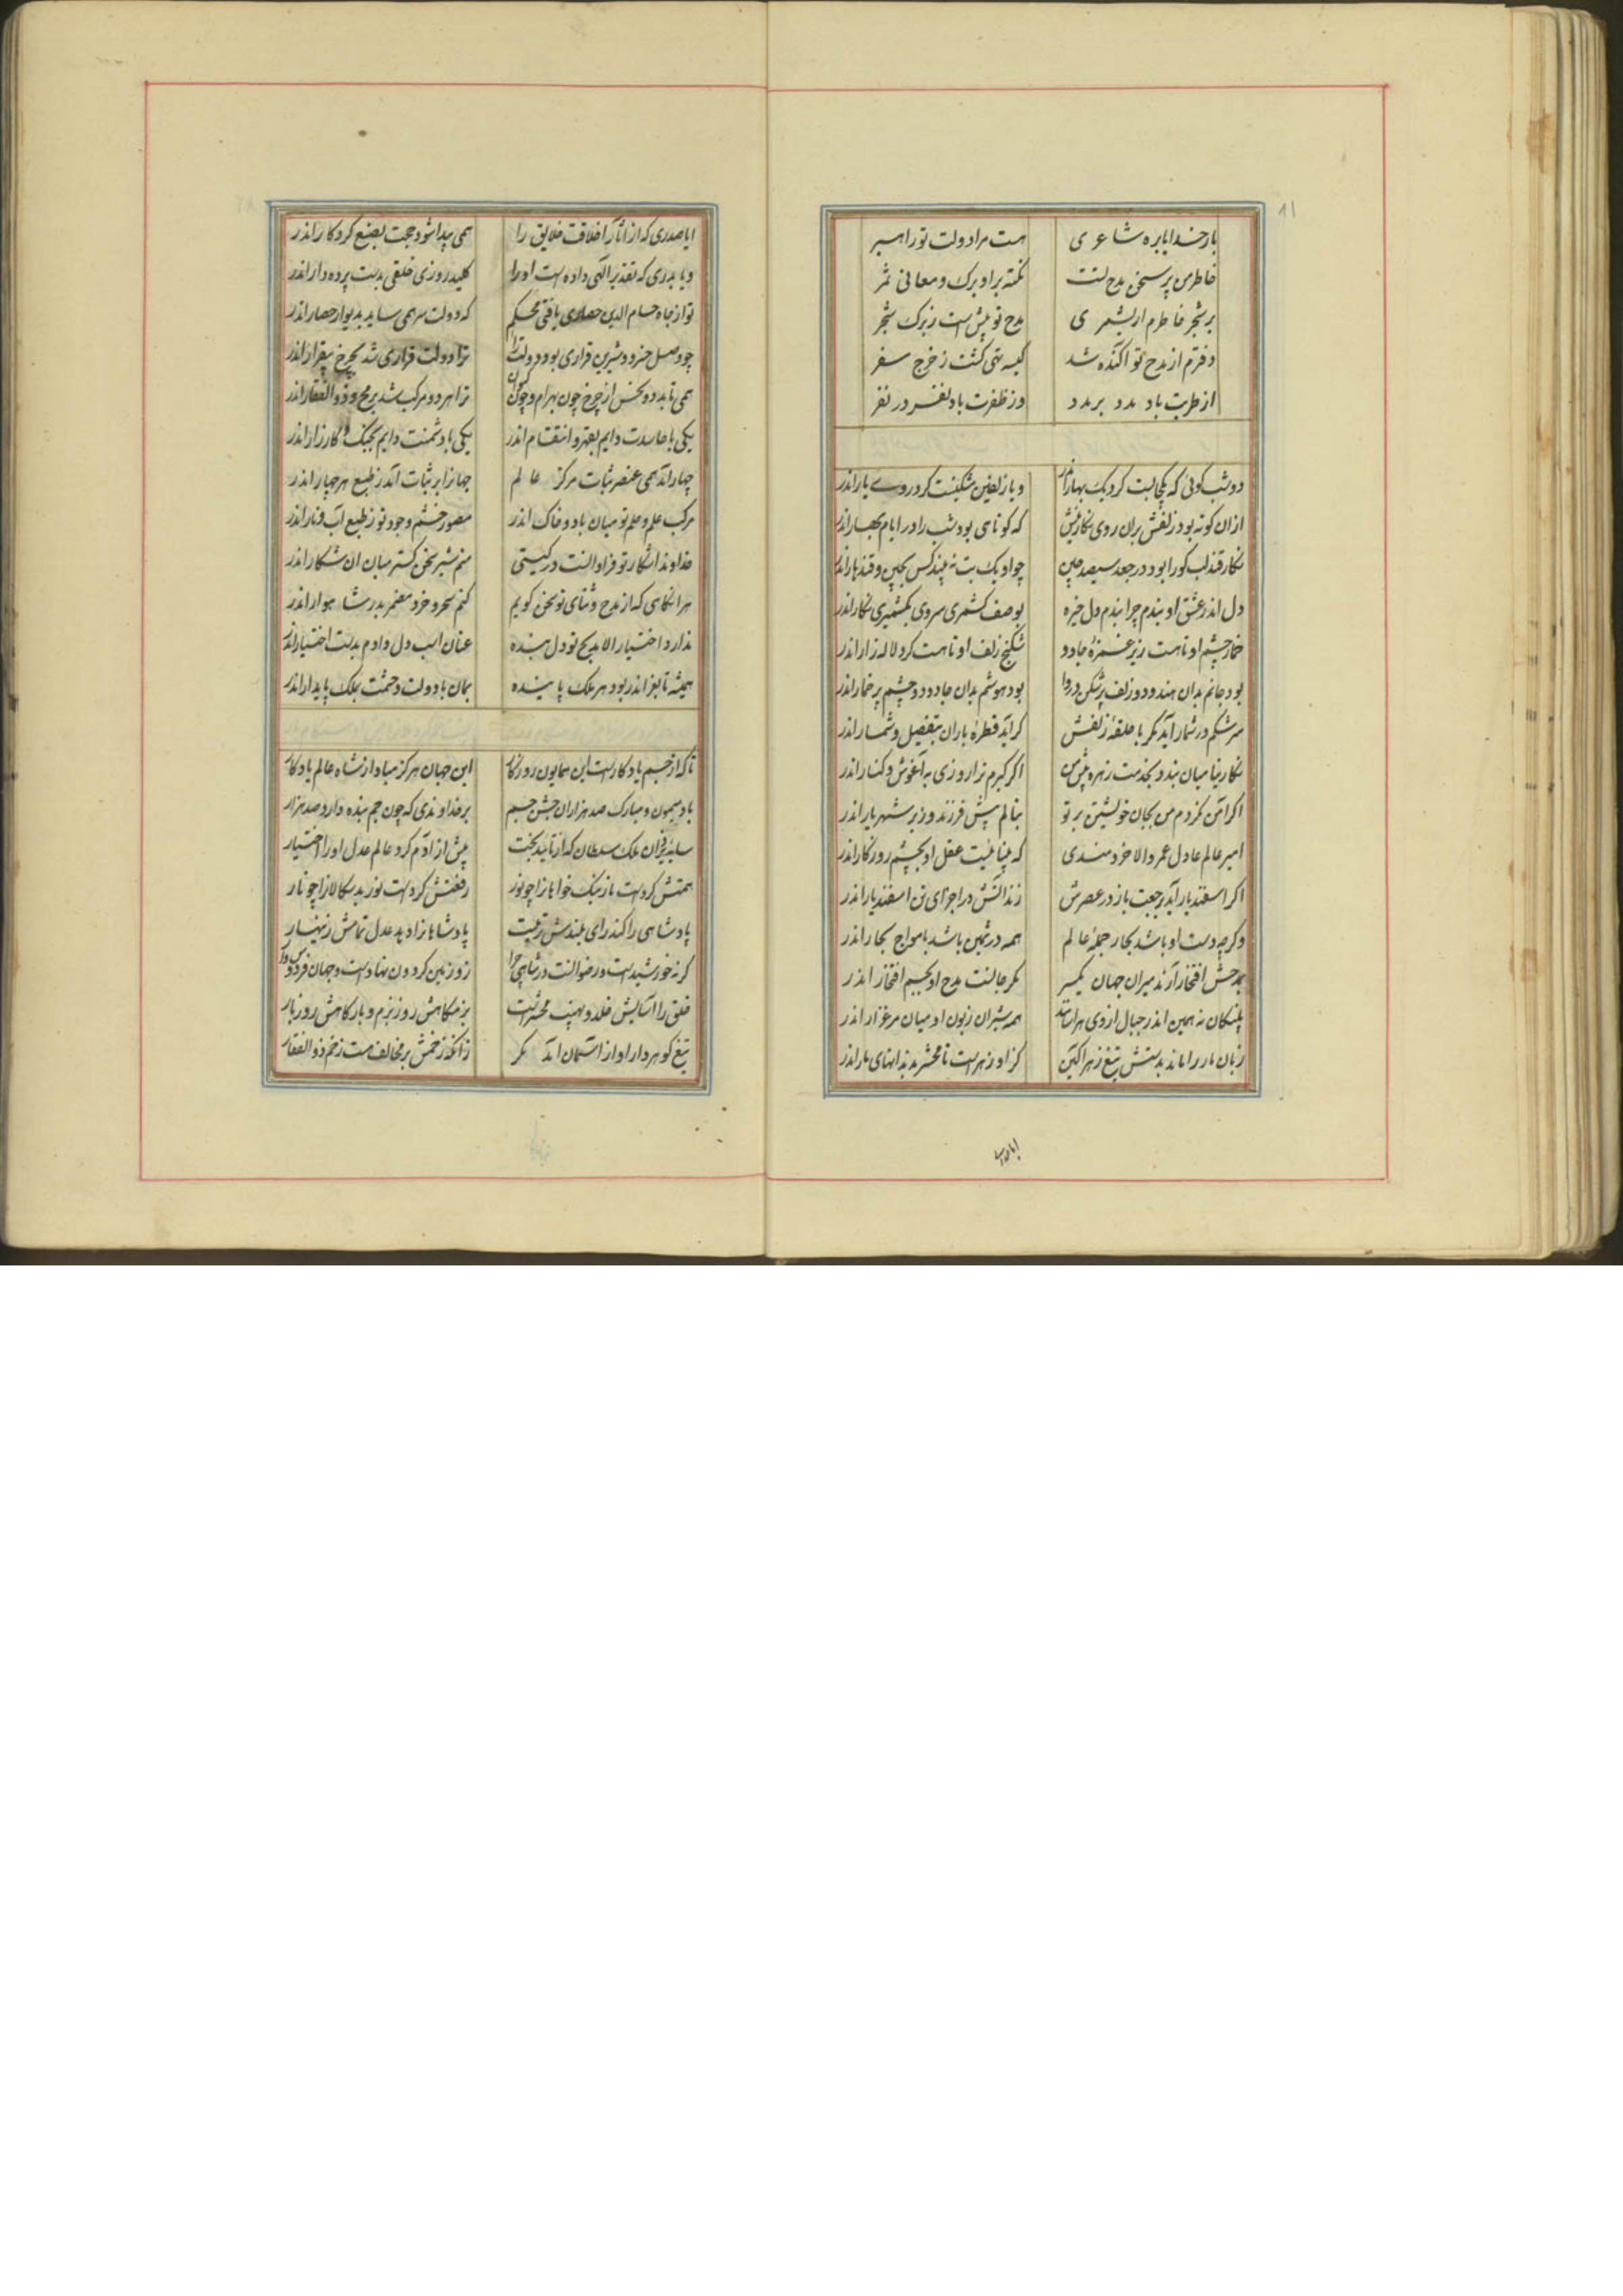 ۸۱
بار خدایا بره شاعری هست مرا دولت تو راهبر
خاطر من پر سخن مدح تست نکته بر او برک و معانی ثمر
بر شجر خاطرم ار بشمری مدح تو بیش است ز برک شجر
دفترم از مدح تو آکنده شد کیسه تهی کشت ز خرج سفر
از طربت باد مدد بر مدد وز ظفرت باد نفر در نفر
دو شب کوئی که یکجا بست کرد یک بهار اندر و یا زلفین شکینت کرد روے یار اندر
ازان کونه بود زلفش بران روی نکارینش که کوتاهی بود شب را در ایام بهار اندر
نکار قند لب کورا بود در جعد سیصد چین چو او یک بت نه بیند کس بچین و قندهار اندر
دل اندر عشق او بندم چرا بندم دل خیره بوصف کشمری سروی بکشمیری نکار اندر
خمار چشم او تا هست زیر غمزهٔ جادو شکنج زلف او تا هست کرد لاله زار اندر
بود جانم بدان هندو دو زلف پرشکن دروا بود هوشم بدان جادو دو چشم پر خمار اندر
سرشکم در شمار آید مکر با حلقهٔ زلفش کر آید قطرهٔ باران بتفصیل و شمار اندر
نکارینا میان بندد بخدمت زهره پیش من اکر کیرم ترا روزی به آغوش و کنار اندر
اکر امن نکردم من بجان خویشتن بر تو بنالم پیش فرزند وزیر شهریار اندر
امیر عالم عادل عمر والا خردمندی که بینا نیست عقل او بچشم روزکار اندر
اکر اسفندیار آید برجعت باز در عصرش زند آتش در اجزای تن اسفندیار اندر
وکر چه دست او باشد بحار جملهٔ عالم همه در ثمین باشد بامواج بحار اندر
بمدحش افتخار آرند میران جهان یکسر مکر جانست مدح او بجسم افتخار اندر
پلنکان نه همین اندر جبال از وی هراسانند همه شیران زبون او میان مرغزار اندر
زبان مار را ماند بدستش تیغ زهر آکین کز او زهر است تا محشر بدندانهای مار اندر
ایا صدری که از آثار اخلاقت خلایق را همی پیدا شود حجت بصنع کردکار اندر
و یا بدری که تقدیر الهی داده است او را کلید روزی خلقی بدست پرده دار اندر
تو از جاه حسام الدین حصاری یافتی محکم که دولت سر همی ساید بدیوار حصار اندر
چو وصل خسرو و شیرین قراری بود دولت را ترا دولت قراری شد بچرخ بیقرار اندر
همی تابد دو نحس از چرخ چون بهرام و چون کیوان ترا هر دو مرکب شد برمح و ذوالفقار اندر
یکی با حاسدت دایم بقهر و انتقام اندر یکی با دشمنت دایم بجنک و کارزار اندر
چهار آمد همی عنصر ثبات مرکز عالم جهانرا بر ثبات آمد ز طبع هر چهار اندر
مرکب علم و حلم تو میان باد و خاک اندر مصور خشم و جود تو ز طبع آب و نار اندر
خداوندا شکار تو فراوانست در کیتی منم شیر سخن کستر میان آن شکار اندر
هر آنکاهی که از مدح و ثنای تو سخن کویم کنم سحر و خرد مضمر بدر شاهوار اندر
ندارد اختیار الا بمدیح تو دل بنده عنان اسب دل دادم بدست اختیار اندر
همیشه تا بغز اندر بود هر ملک پاینده بمان با دولت و حشمت بملک پایدار اندر
تا که از جسم یادکار است این همایون روزکار این جهان هرکز مباد از شاه عالم یادکار
باد میمون و مبارک صد هزاران جشن جسم بر خداوندی که چون جم بنده دارد صد هزار
سایهٔ یزدان ملک سلطان که از تایید بخت پیش از آدم کرد عالم عدل او را اختیار
همتش کردست نار نیک خواهانرا چو نور رفعتش کردست نور بدسکالانرا چو نار
پادشاهی را کند رای بلندش تربیت پادشاهانرا دهد عدل تمامش زینهار
کر نه خورشید است و رضوانست در شاهی چرا زو زمین کردون نهادست و جهان فردوس وار
خلق را آسایش خلد و نهیب محشر است بزمکاهش روز بزم و بارکاهش روز بار
تیغ کوهردار او از آسمان آمد مکر زانکه زخمش بر مخالف هست زخم ذوالفقار